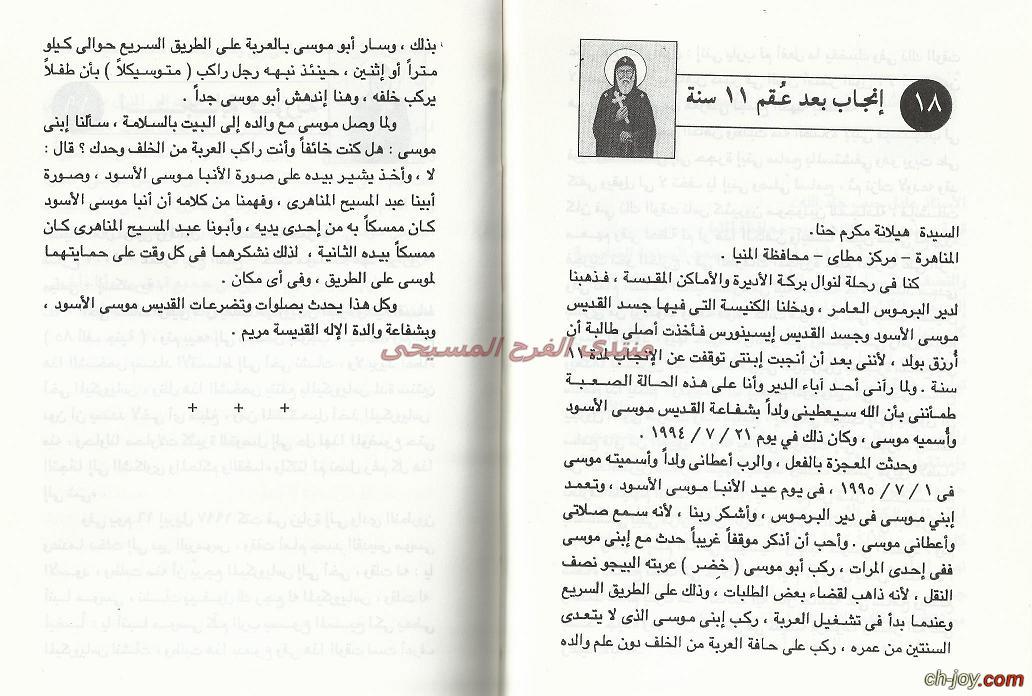 ١٨
إنجاب بعد عُقم ١١ سنة
السيدة هيلانة مكرم حنا.
المناهرة – مركز مطاى – محافظة المنيا .
كنا فى رحلة لنوال بركة الأديرة والأماكن المقدسة ، فذهبنا
لدير البرموس العامر ، ودخلنا الكنيسة التى فيها جسد القديس
موسى الأسود وجسد القديس إيسينورس فأخذت أصلى طالبة أن
أُرزق بولد ، لأننى بعد أن أنجبت إبنتى توقفت عن الإنجاب لمدة ١١
سنة . ولما رآنى أحد آباء الدير وأنا على هذه الحالة الصعبة
طمأننى بأن الله سيعطينى ولداً بشفاعة القديس موسى الأسود
وأُسميه موسى ، وكان ذلك في يوم ٢١ / ٧ / ١٩٩٤ .
وحدثت المعجزة بالفعل ، والرب أعطانى ولداً وأسميته موسى
فى ١ / ٧ / ١٩٩٥ ، فى يوم عيد الأنبا موسى الأسود ، وتعمد
إبني موسى فى دير البرموس ، وأشكر ربنا ، لأنه سمع صلاتى
وأعطانى موسى . وأحب أن أذكر موقفاً غريباً حدث مع إبنى موسى
ففى إحدى المرات ، ركب أبو موسى ( خضر ) عربته البيجو نصف
النقل ، لأنه ذاهب لقضاء بعض الطلبات ، وذلك على الطريق السريع
وعندما بدأ فى تشغيل العربة ، ركب إبنى موسى الذى لا يتعدى
السنتين من عمره ، ركب على حافة العربة من الخلف دون علم والده
بذلك ، وسار أبو موسى بالعربة على الطريق السريع حوالى كيلو
متراً أو إثنين ، حينئذ نبهه رجل راكب ( متوسيكلاً ) بأن طفلاً
يركب خلفه ، وهنا إندهش أبو موسى جداً .
ولما وصل موسى مع والده إلى البيت بالسلامة ، سألنا إبنى
موسى : هل كنت خائفاً وأنت راكب العربة من الخلف وحدك ؟ قال :
لا ، وأخذ يشير بيده على صورة الأنبا موسى الأسود ، وصورة
أبينا عبد المسيح المناهرى ، وفهمنا من كلامه أن أنبا موسى الأسود
كان ممسكاً به من إحدى يديه ، وأبونا عبد المسيح المناهرى كان
ممسكاً بيده الثانية ، لذلك نشكرهما فى كل وقت على حمايتهما
لموسى على الطريق ، وفى أى مكان .
وكل هذا يحدث بصلوات وتضرعات القديس موسى الأسود ،
وبشفاعة والدة الإله القديسة مريم .
+ + +
منتدى الفرح المسيحى
ch-joy.com